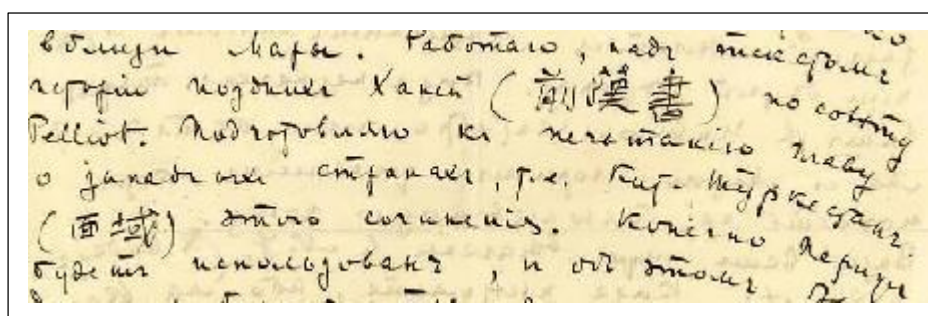 вблизи Мары. Работаю, надъ текстомъ
исторіи позднихъ Ханей (前漢書) по совѣту
Pelliot. Подготовляю къ печатанію главу
о западныхъ странахъ, т.е. Кит. Туркестанъ
(西域) этого сочиненія. Конечно Парижъ
будетъ использованъ, и объ этомъ